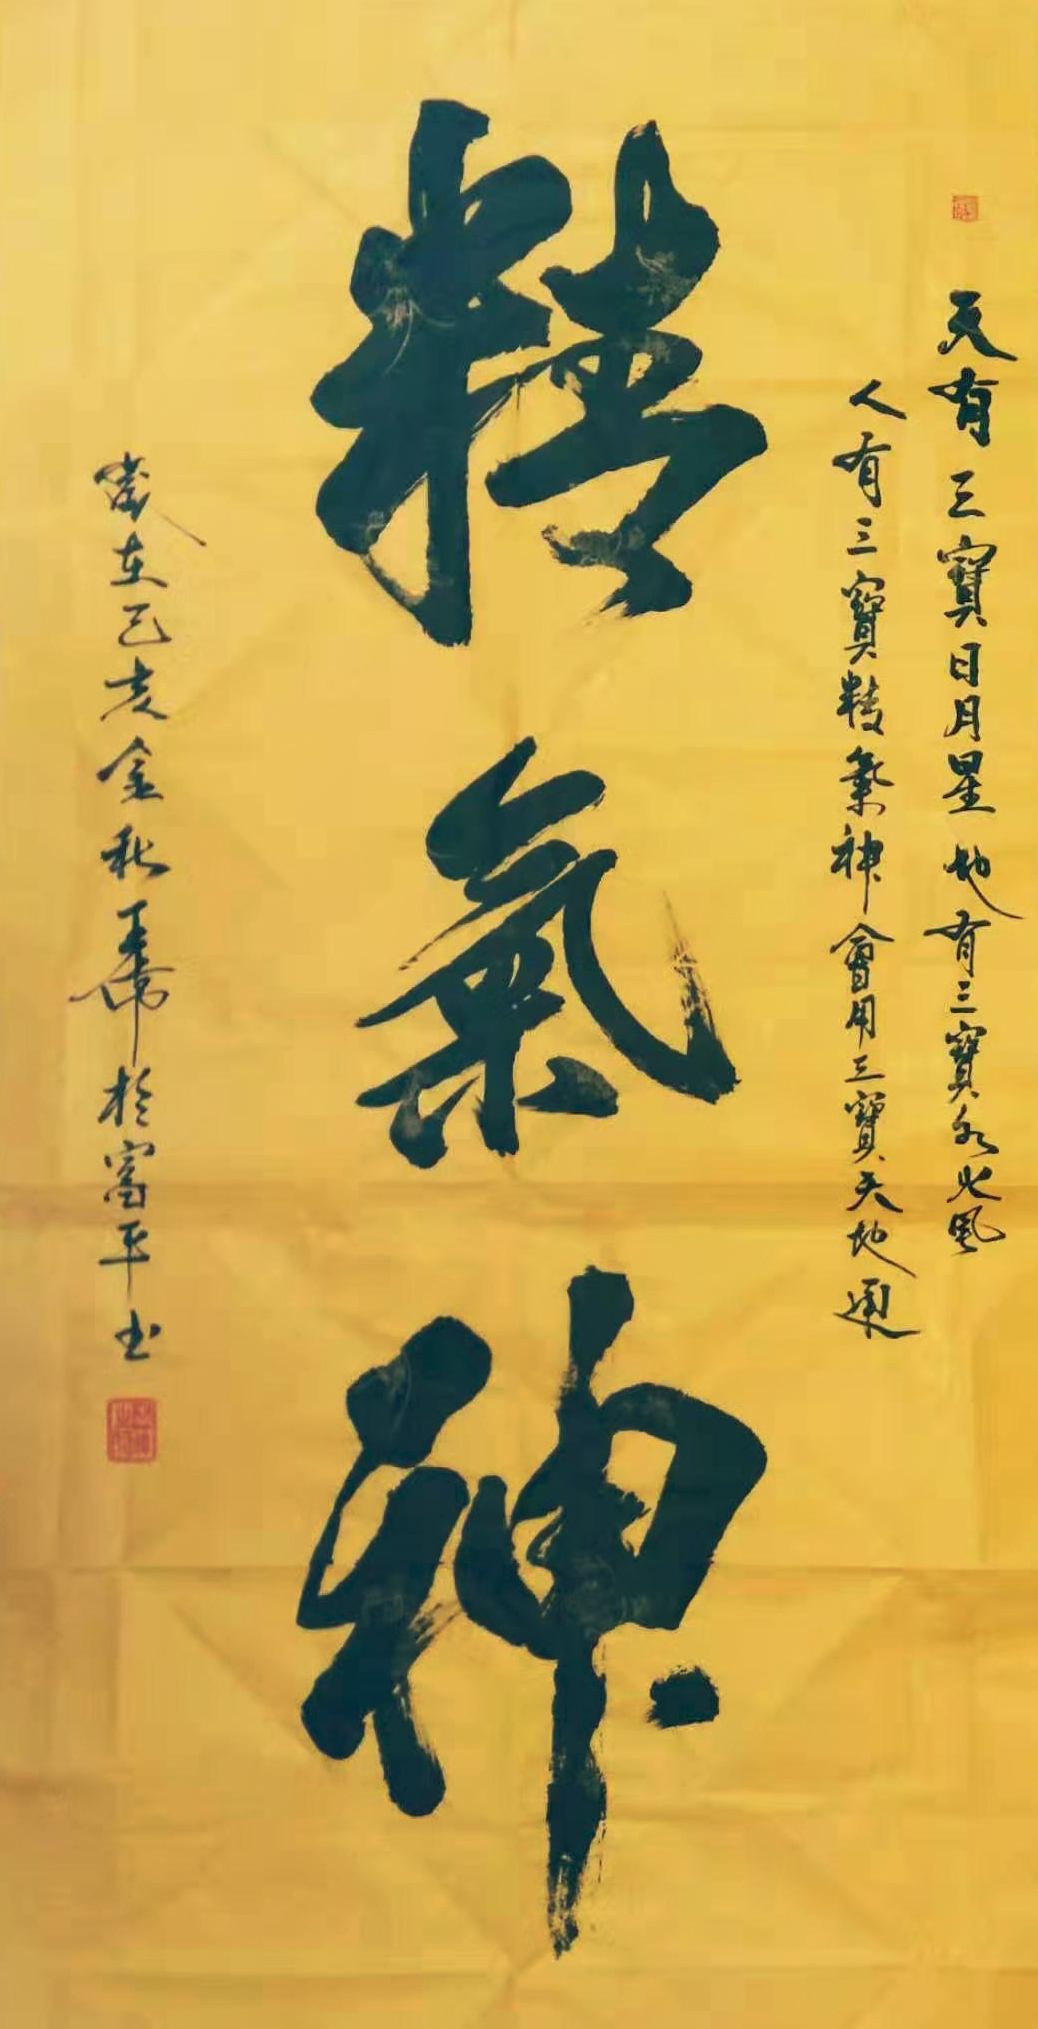 天有三寶日月星地有三寶水火風
人有三寶精氣神會用三寶天地通
精氣神
歲在己亥金秋於富平书